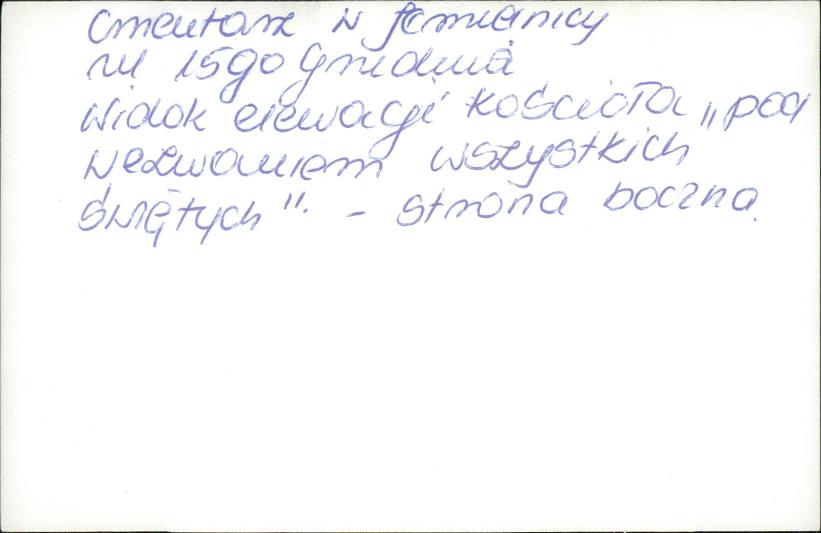 Cmentarz w Łomianicy
ul 15go Grudnia
Widok elewacji Kościoła „pod
Wezwaniem wszystkich
świętych". - strona boczna.